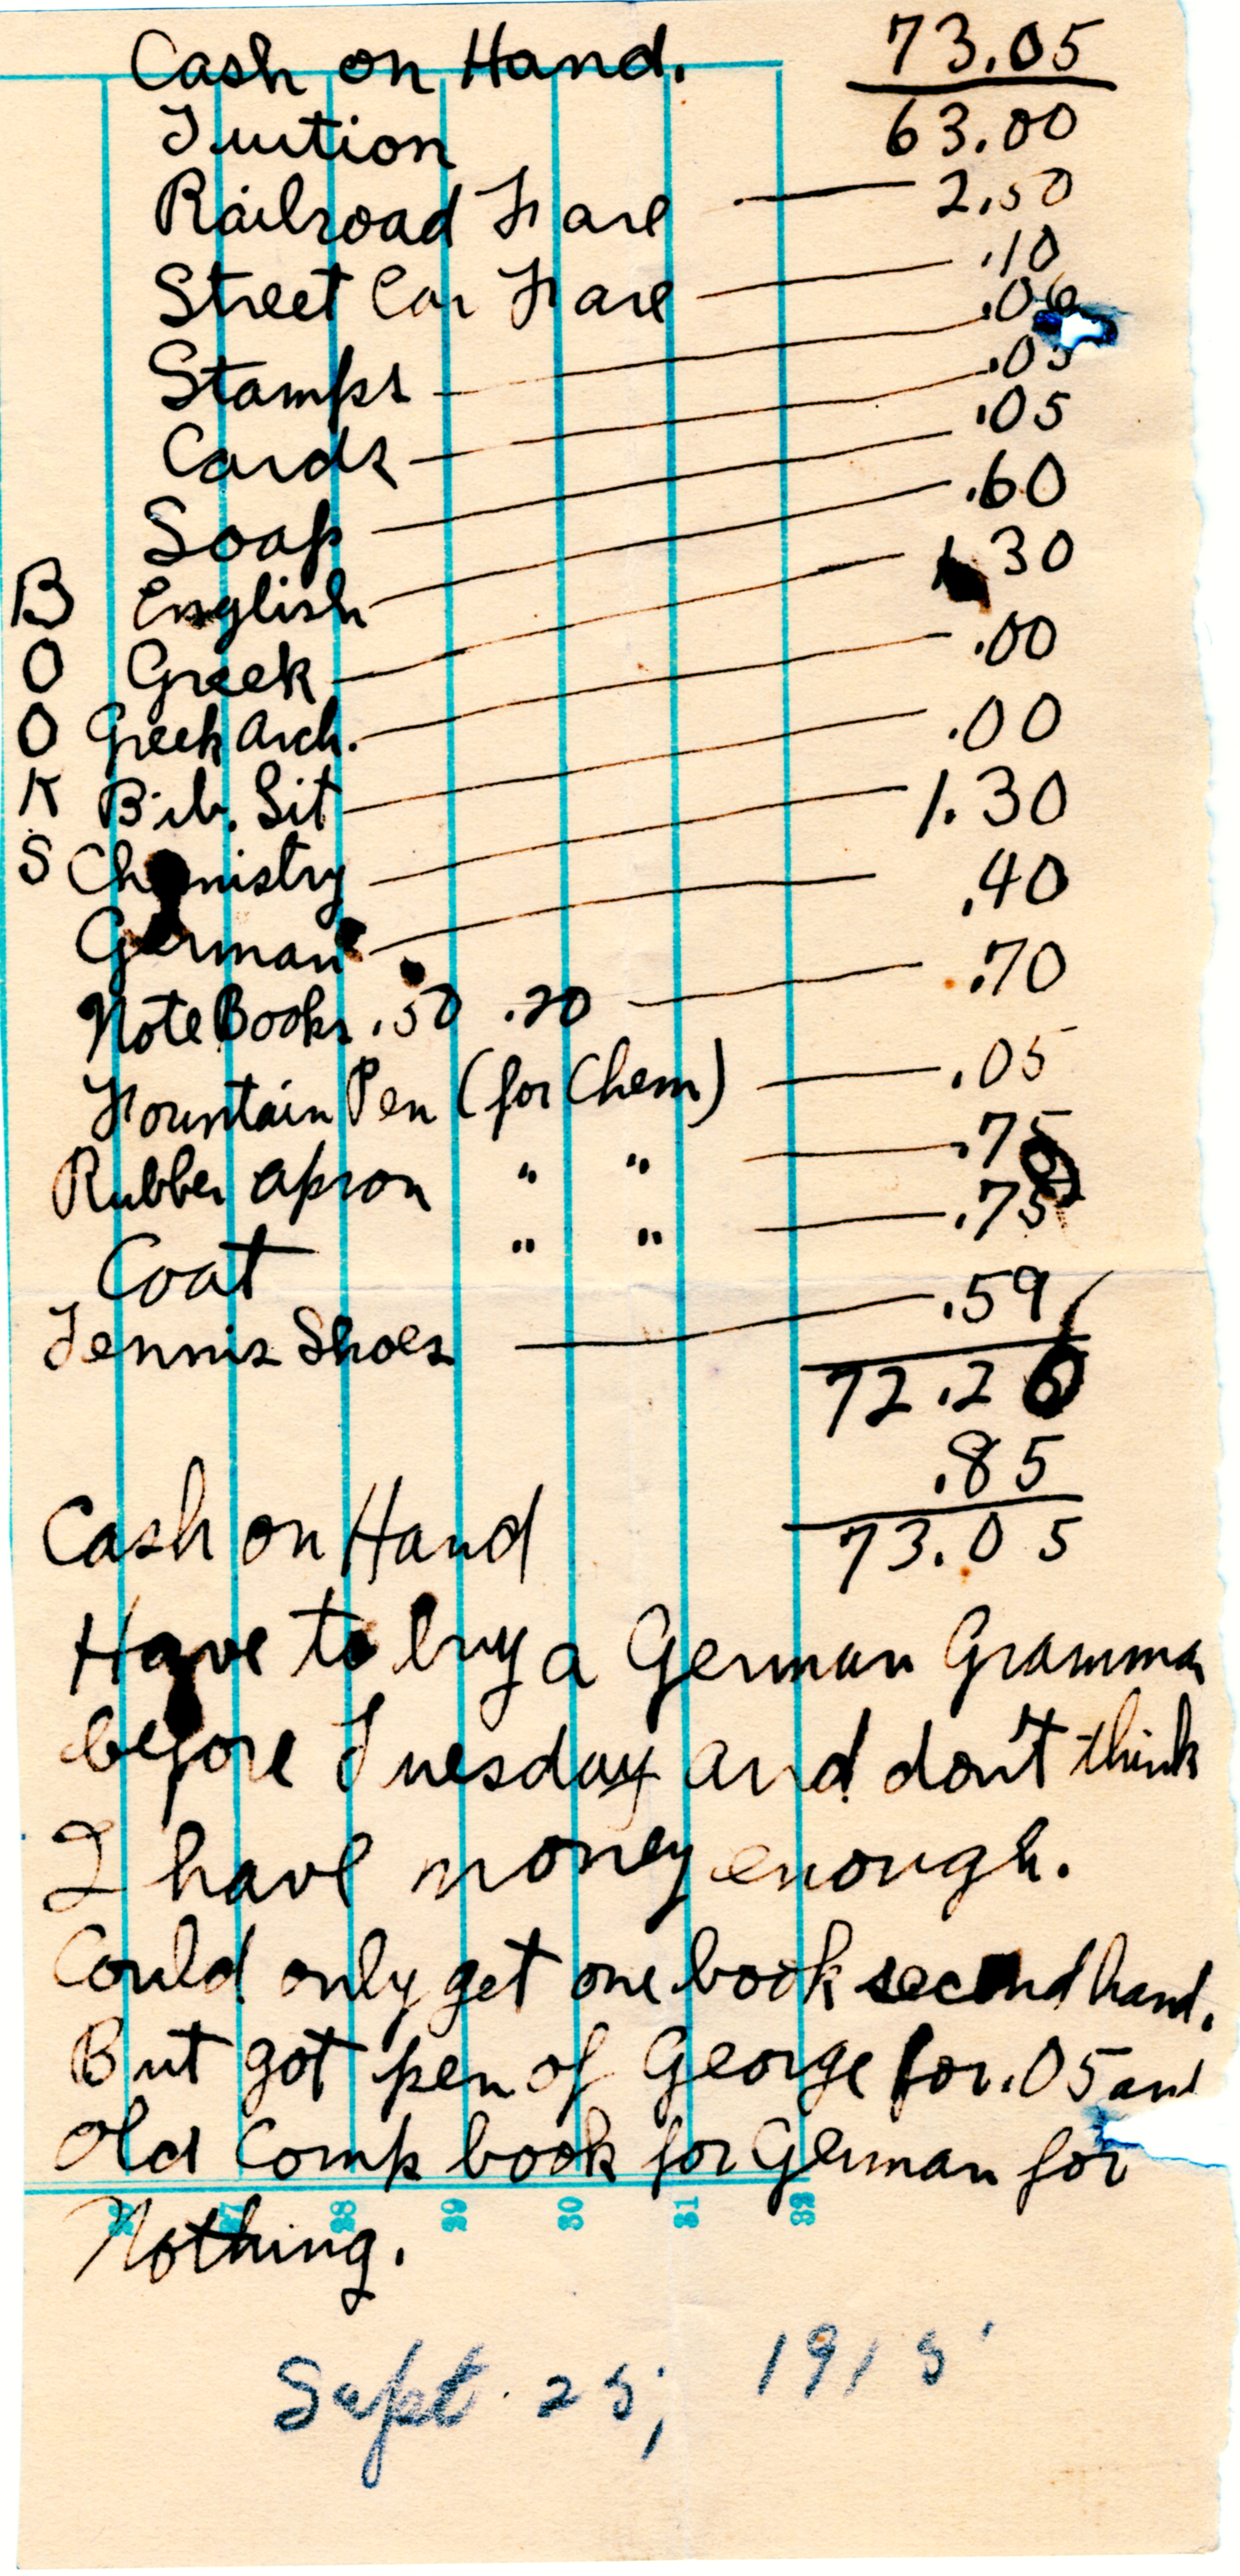 Cash on Hand. 73.05
Tuition 63.00
Railroad Fare — 2.50
Street Car Fare — .10
Stamps — .06
Cards — .05
Soap — .05
B English — .60
O Greek — 1.30
O Greek Arch. — .00
K Bib. Lit — .00
S Chemistry — 1.30
German — .40
Note Books .50 .20 — .70
Fountain Pen (for Chem) — .05
Rubber apron " " — .75
Coat " " — .75
Tennis Shoes — .59
72.20
Cash on Hand .85
73.05
Have to buy a German Gramma
before Tuesday and don't think
I have money enough.
Could only get one book second hand.
But got pen of George for .05 and
Old Comp book for German for
Nothing.
26 27 28 29 30 31 32
Sept. 25, 1915